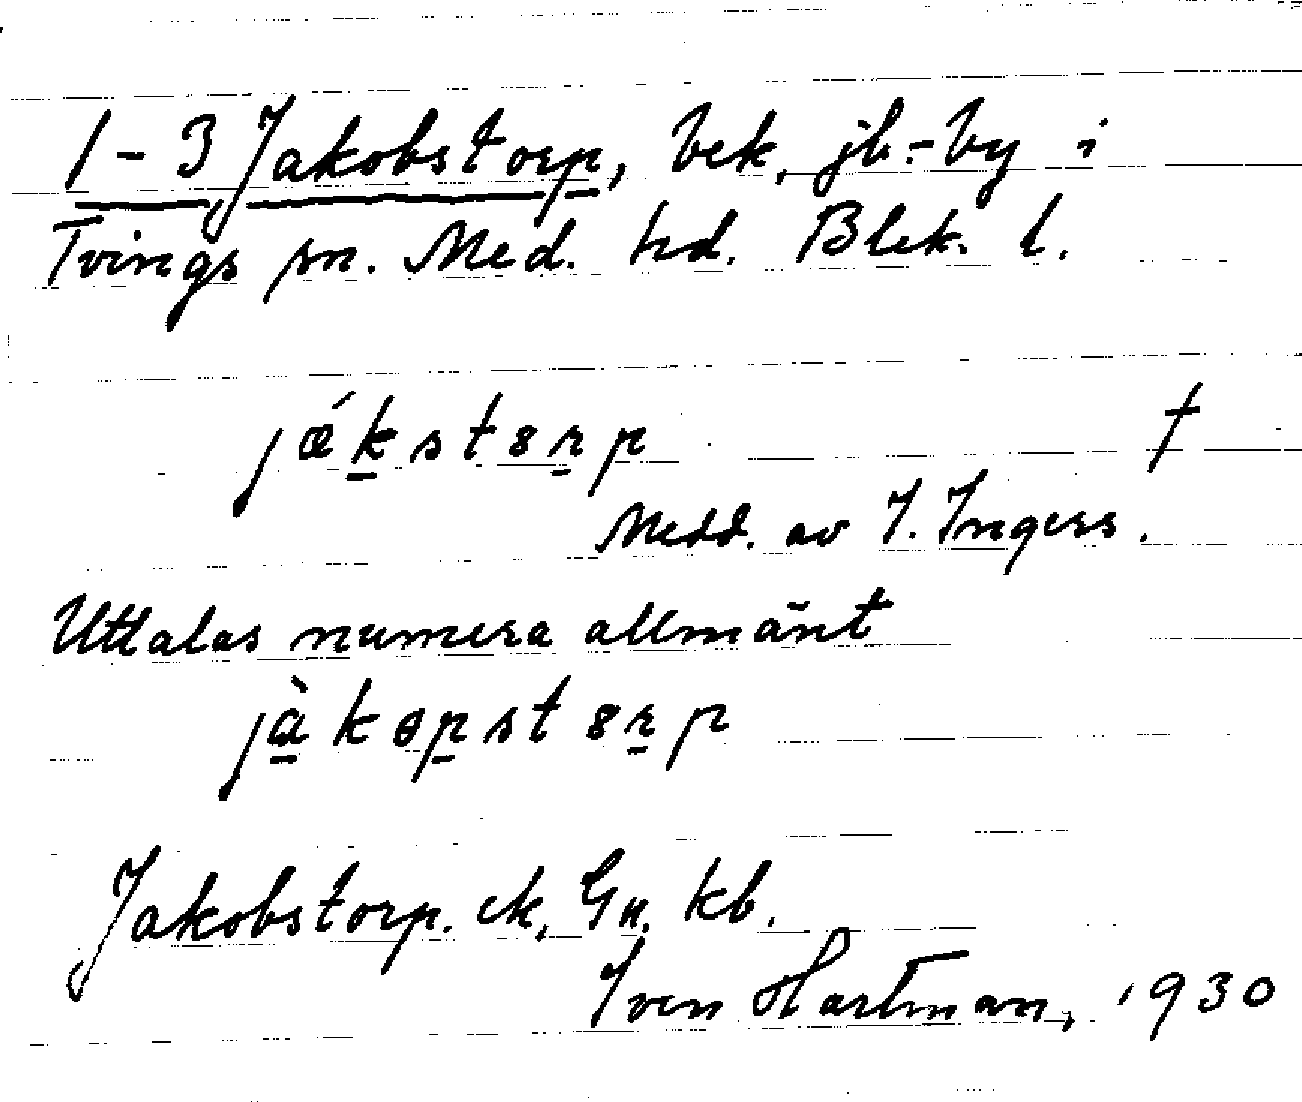 1-3 Jakobstorp, bek, jb.-by i
Tvings sn. Med. hd. Blek. l.
jǽkstȣrp †
Medd. av I. Ingers.
Uttalas numera allmänt
jàkɵpstȣrp
Jakobstorp. ek, Gu. kb.
Iven Hartman, 1930